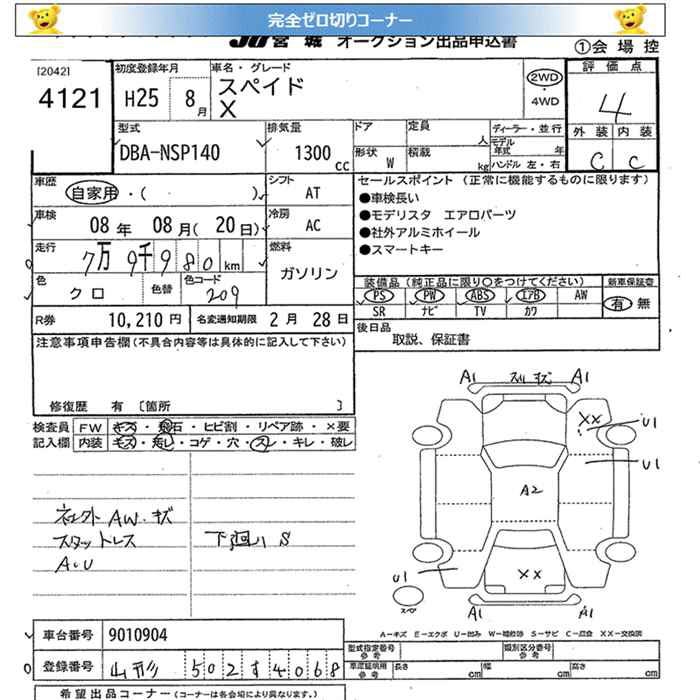 完全ゼロ切りコーナー
JU宮城 オークション出品申込書
①会場控
[2042]
4121
初度登録年月
H25 8月
車名・グレード
スペイド
X
2WD
・
4WD
評価点
4
外装 内装
C C
型式
DBA-NSP140
排気量
1300 cc
ドア 定員 人
形状 W 積載 kg
ディーラー・並行
モデル年式 年
ハンドル 左・右
車歴
自家用・( )
シフト AT
車検
08年 08月(20日)
冷房 AC
走行
7万9千980km
燃料
ガソリン
色
クロ
色替
色コード
209
R券 10,210円
名変通知期限 2月 28日
セールスポイント (正常に機能するものに限ります)
●車検長い
●モデリスタ エアロパーツ
●社外アルミホイール
●スマートキー
装備品(純正品に限り〇をつけてください)
新車保証書
PS PW ABS エアB AW
SR ナビ TV カワ
有 無
後日品
取説、保証書
注意事項申告欄(不具合内容等は具体的に記入して下さい)
修復歴 有 〔箇所 〕
検査員記入欄
FW キズ・飛石・ヒビ割・リペア跡・×要
内装 キズ・汚レ・コゲ・穴・スレ・キレ・破レ
AW.キズ
スタットレス
A.U
下廻り S
A1 キズ A1
XX
U1
U1
A2
XX
U1
スペア
A1 A1
A-キズ E-エクボ U-凹み W-補修跡 S-サビ C-腐食 XX-交換済
車台番号 9010904
登録番号 山形 502す4068
型式指定番号 参考
類別区分番号 参考
車庫証明用 参考
長さ cm 幅 cm 高さ cm
希望出品コーナー(コーナーは各会場により異なります。)